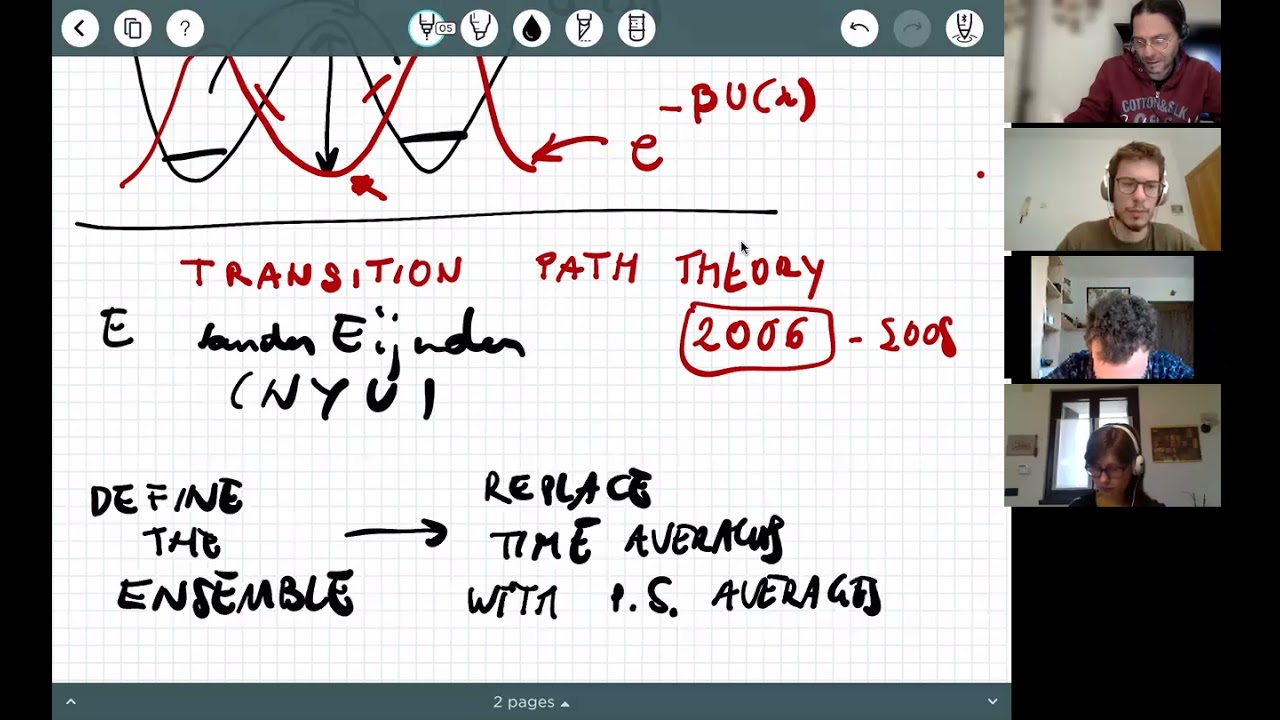 05
e^-βU(x)
TRANSITION PATH THEORY
E Vanden Eijnden 2006 - 2008
(NYU)
DEFINE REPLACE
THE → TIME AVERAGES
ENSEMBLE WITH P.S. AVERAGES
COTTON&SILK
2 pages